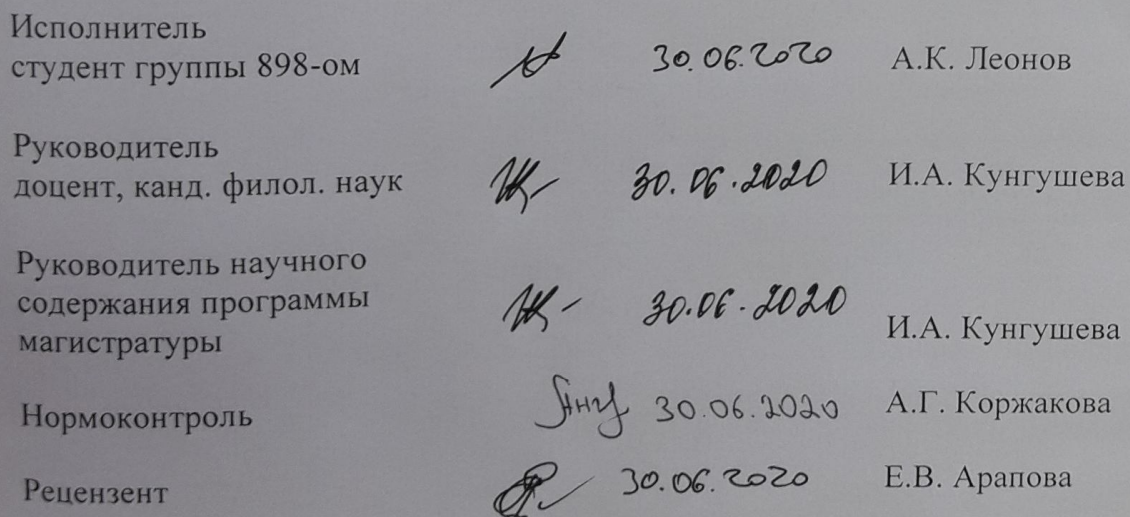 Исполнитель
студент группы 898-ом 30.06.2020 А.К. Леонов
Руководитель
доцент, канд. филол. наук 30.06.2020 И.А. Кунгушева
Руководитель научного
содержания программы 30.06.2020
магистратуры И.А. Кунгушева
Нормоконтроль 30.06.2020 А.Г. Коржакова
Рецензент 30.06.2020 Е.В. Арапова